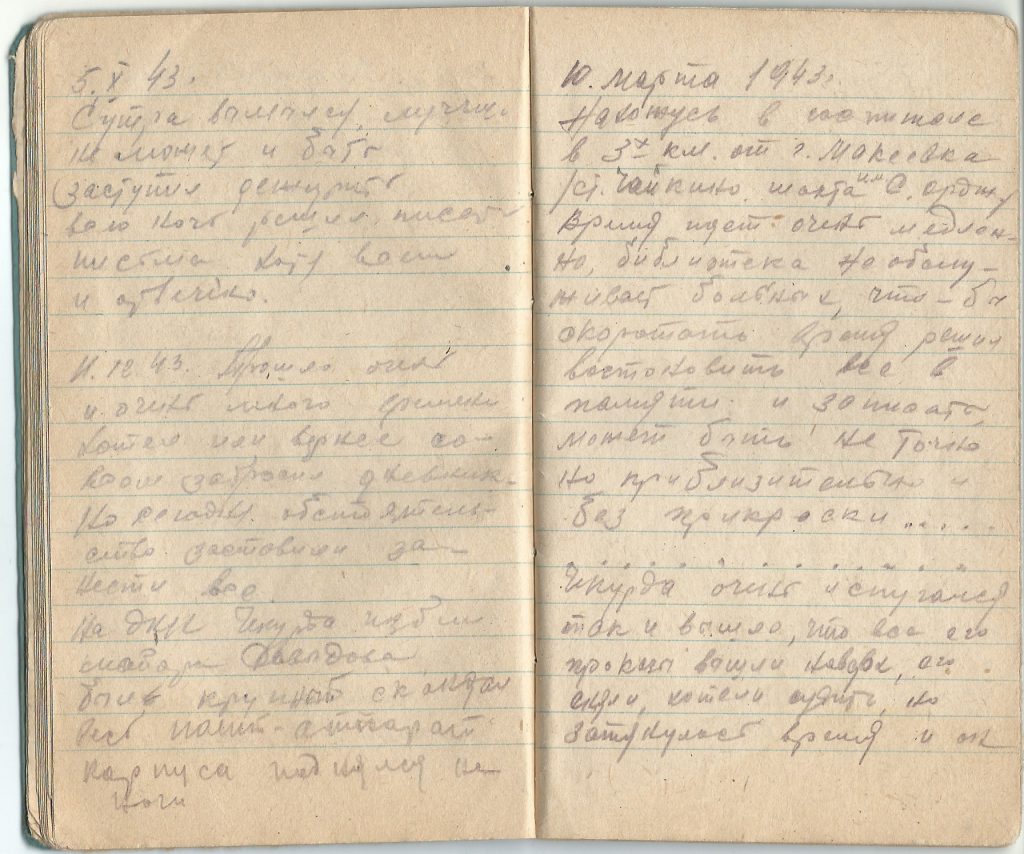 5.X 43.
Сутра вымылся, лучше
не может и быть
заступил дежурить
всю ночь решил писать
письма
и

11.12.43. Прошло очень
и очень много времени
хотел или вернее со-
всем забросил дневник.
Но сегодня обстоятель-
ство заставили за-
нести все
на днях Чекурда избил
Давыдова
был крупный скандал
Весь полит-аппарат
корпуса поднялся на
ноги
10. марта 1943г.
Нахожусь в госпитале
в 3х км. от г. Макеевка
/ст. Чайкино шахта им С. орджо
Время идет очень медлен-
но, библиотека не обслу-
живает больных, что-бы
скоротать время решил
востоновить все в
памяти и записать,
может быть не точно
но приблизительно и
без прикраски.....
Чекурда очень испугался
так и вышло, что все его
вышли наверх, его
сняли, хотели судить, но
затянулось время и он